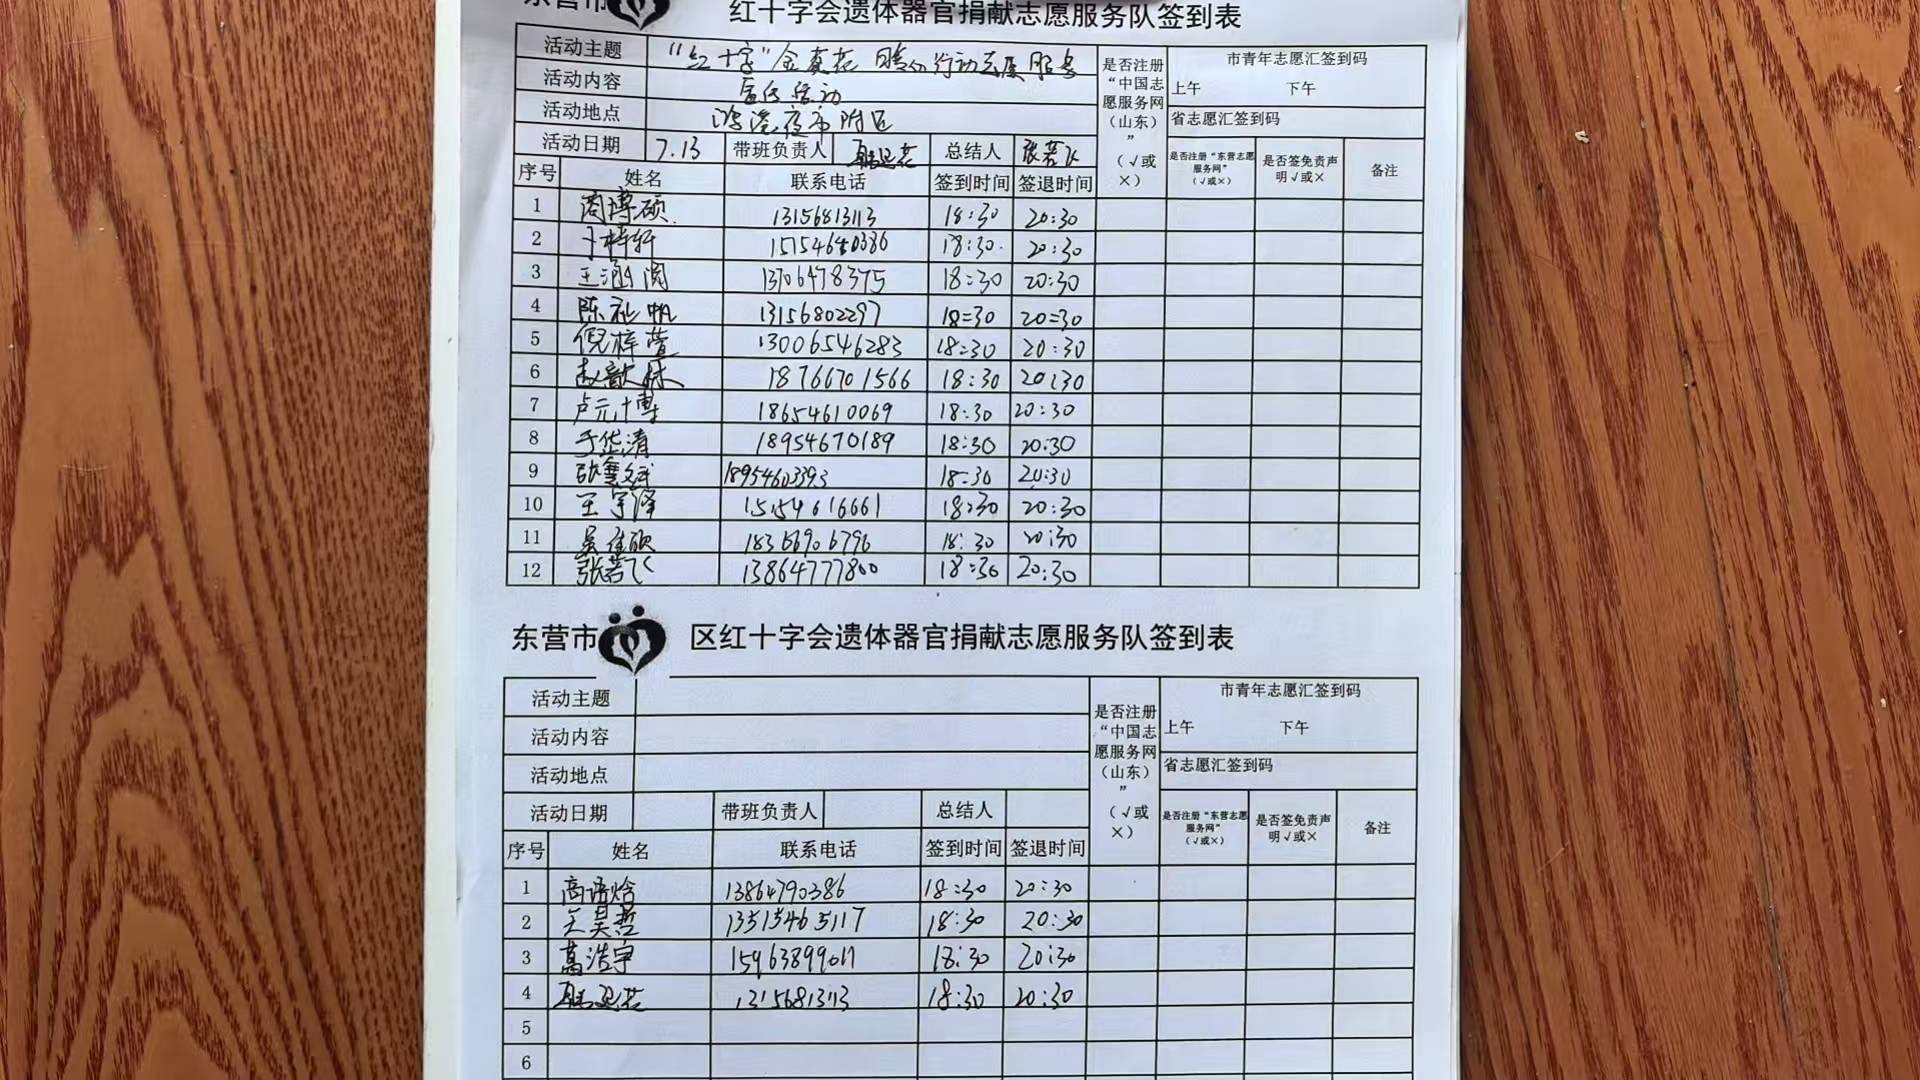 东营市 红十字会遗体器官捐献志愿服务队签到表
活动主题 “红十字”金葵花 行动志愿服务
活动内容 宣传活动
活动地点 鸿港夜市附近
活动日期 7.13 带班负责人 总结人 张若飞
是否注册“中国志愿服务网（山东）”（√或×）
市青年志愿汇签到码
上午 下午
省志愿汇签到码
是否注册“东营志愿服务网”（√或×） 是否签免责声明√或× 备注
序号 姓名 联系电话 签到时间 签退时间
1 周博硕 13156813113 18:30 20:30
2 梓轩 15154640386 18:30 20:30
3 王涵 13706478375 18:30 20:30
4 陈礼帆 13156802297 18:30 20:30
5 倪梓萱 13006546283 18:30 20:30
6 赵歆 18766701566 18:30 20:30
7 卢元博 18654610069 18:30 20:30
8 于华清 18954670189 18:30 20:30
9 张 斌 18954603393 18:30 20:30
10 王宇泽 15154616661 18:30 20:30
11 吴佳欣 18366906796 18:30 20:30
12 张若飞 13864777800 18:30 20:30
东营市 区红十字会遗体器官捐献志愿服务队签到表
活动主题
活动内容
活动地点
活动日期 带班负责人 总结人
是否注册“中国志愿服务网（山东）”（√或×）
市青年志愿汇签到码
上午 下午
省志愿汇签到码
是否注册“东营志愿服务网”（√或×） 是否签免责声明√或× 备注
序号 姓名 联系电话 签到时间 签退时间
1 商语晗 13864790386 18:30 20:30
2 王昊哲 13515465117 18:30 20:30
3 高浩宇 15963899011 18:30 20:30
4 13156813113 18:30 20:30
5
6